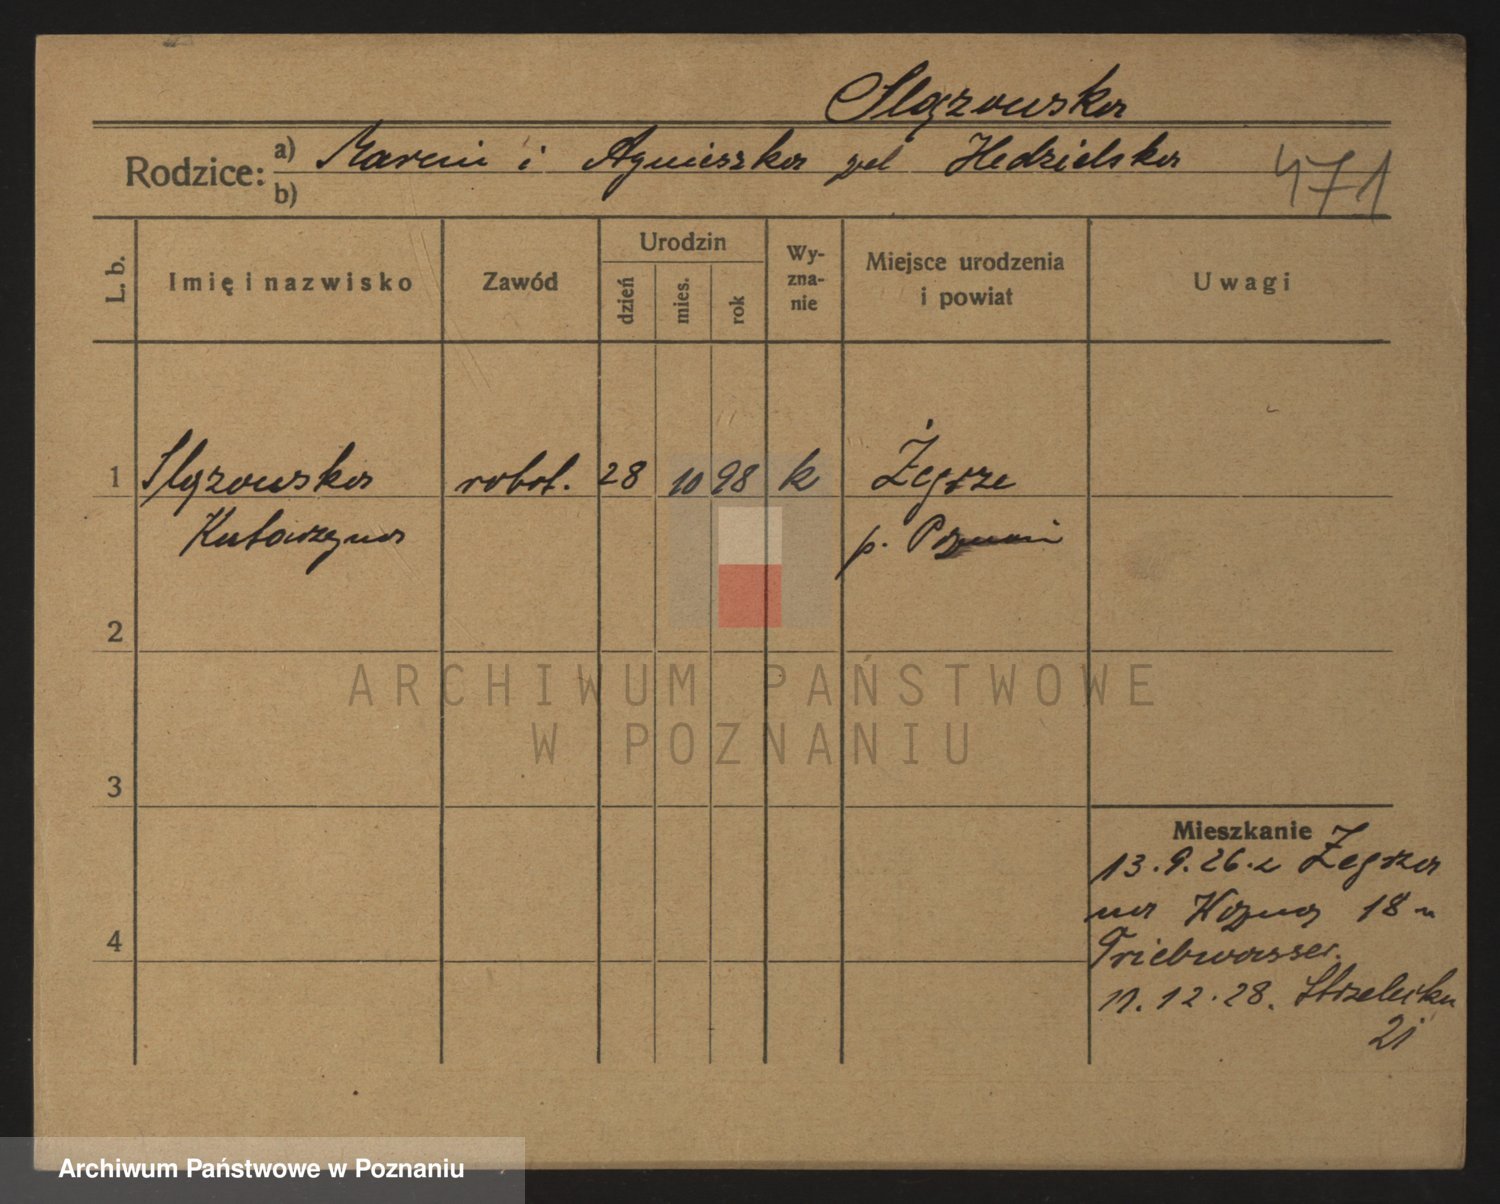 Slązowska
Rodzice: a) Marcin i Agnieszka zd Hedzielska
b)
471
L. b.
Imię i nazwisko
Zawód
Urodzin
dzień
mies.
rok
Wy-
zna-
nie
Miejsce urodzenia
i powiat
Uwagi
1 Slązowska robot. 28 10 98 k Żegrze
Katarzyna p. Poznań
2
3
4
Mieszkanie
13.9.26. z Żegrza
na 18
Triebwasser.
11.12.28. Strzelecka
21
ARCHIWUM PAŃSTWOWE
W POZNANIU
Archiwum Państwowe w Poznaniu